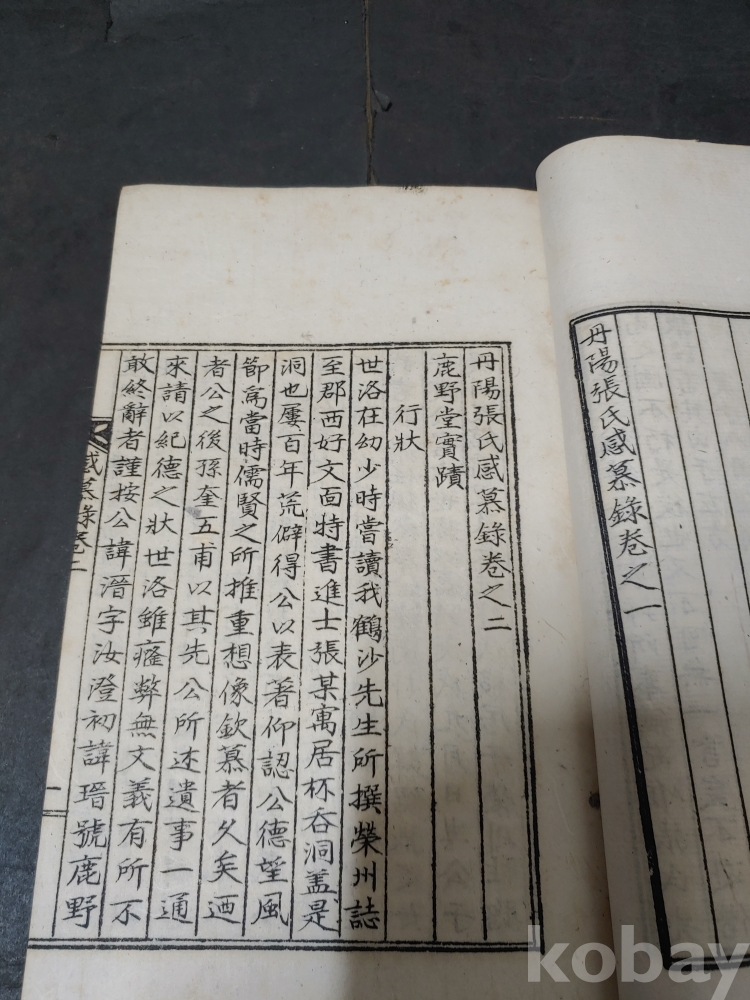 丹陽張氏感慕錄卷之一
丹陽張氏感慕錄卷之二
鹿野堂實蹟
行狀
世洛在幼少時嘗讀我鶴沙先生所撰榮州誌
至郡西好文面特書進士張某寓居杯吞洞盖是
洞也屢百年荒僻得公以表著仰認公德望風
節爲當時儒賢之所推重想像欽慕者久矣迺
者公之後孫奎五甫以其先公所述遺事一通
來請以紀德之狀世洛雖癃弊無文義有所不
敢終辭者謹按公諱湝字汝澄初諱瑨號鹿野
感慕錄卷二
一
kobay